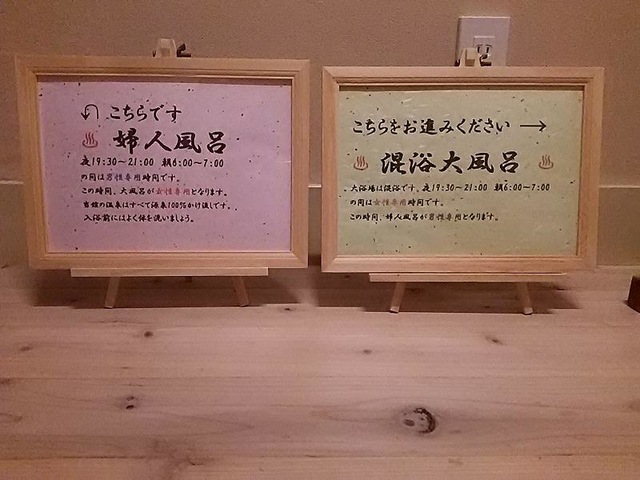 こちらです
♨ 婦人風呂
夜19:30～21:00 朝6:00～7:00
の間は男性専用時間です。
この時間、大風呂が女性専用となります。
当館の温泉はすべて源泉100%かけ流しです。
入浴前にはよく体を洗いましょう。
こちらをお進みください →
♨ 混浴大風呂 ♨
大浴場は混浴です。夜19:30～21:00 朝6:00～7:00
の間は女性専用時間です。
この時間、婦人風呂が男性専用となります。